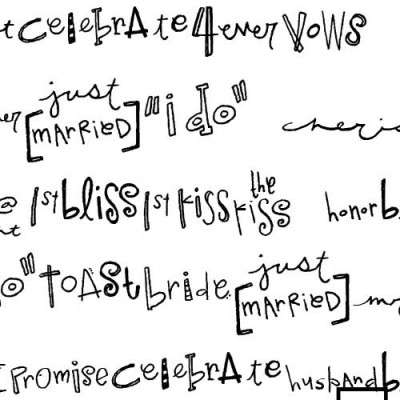 t celebrate 4ever vows
just
[married] "i do" cheris
the
@ 1st bliss 1st kiss kiss honor b
o" toast bride just
[married] my
I promise celebrate husband b